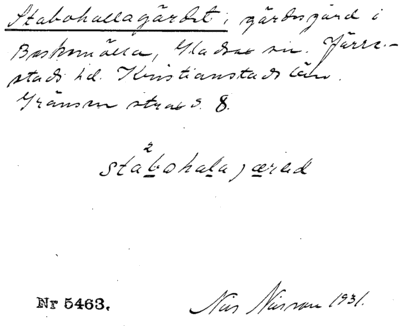 Stabohallagärdet, gärdsgård i
Baskemölla, Gladsax sn. Järre-
stads hd. Kristianstads län.
Gränsen strand. 8.
2
stabohala, jæred
Nr 5463.
Nils Nilsson 1931.